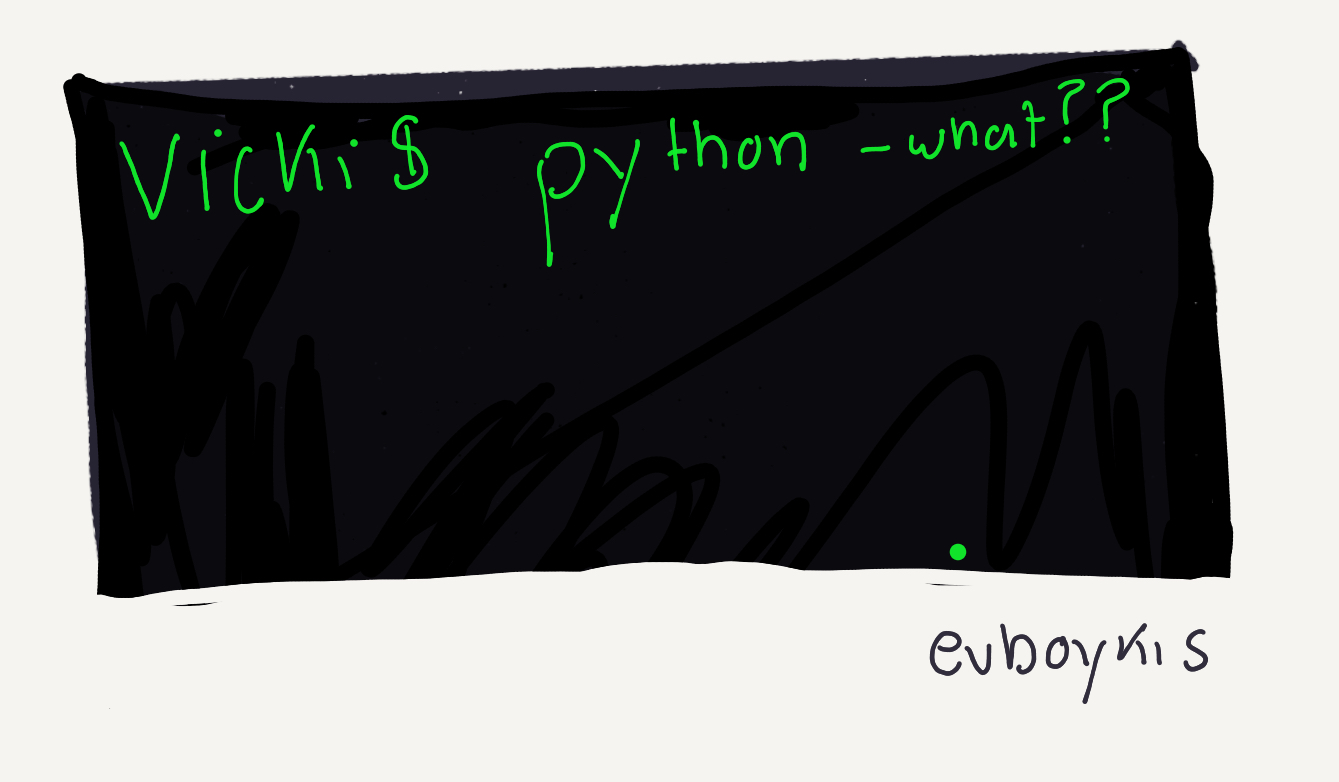 Vicki$ python -what??
evboykis